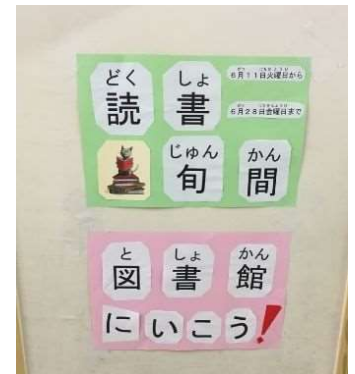 どく しょ
読書
６月１１日火曜日から
６月２８日金曜日まで
じゅん かん
旬間
と しょ かん
図書館
にいこう！